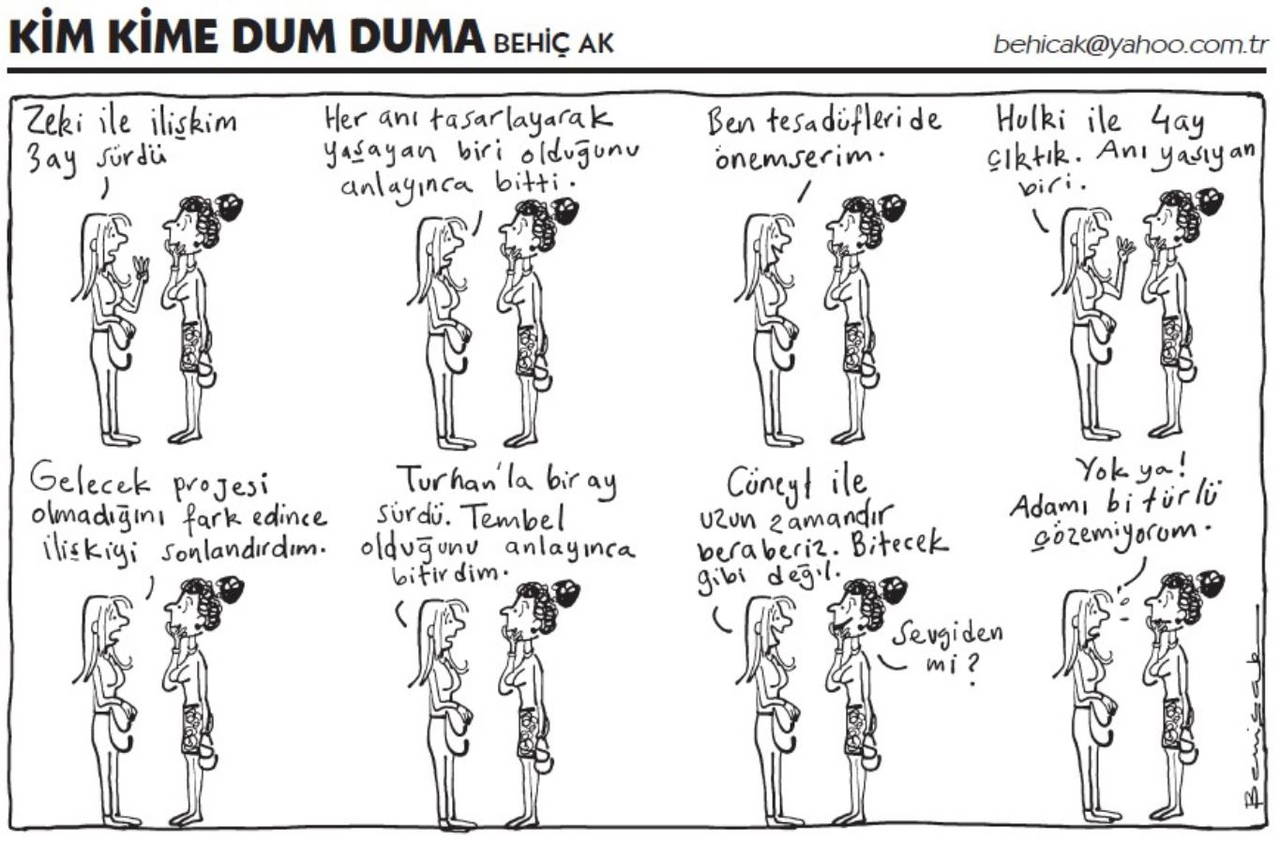 KİM KİME DUM DUMA BEHİÇ AK
behicak@yahoo.com.tr
Zeki ile ilişkim
3ay sürdü
Her anı tasarlayarak
yaşayan biri olduğunu
anlayınca bitti.
Ben tesadüfleri de
önemserim.
Hulki ile 4ay
çıktık. Anı yaşıyan
biri.
Gelecek projesi
olmadığını fark edince
ilişkiyi sonlandırdım.
Turhan'la bir ay
sürdü. Tembel
olduğunu anlayınca
bitirdim.
Cüneyt ile
uzun zamandır
beraberiz. Bitecek
gibi değil.
Sevgiden
mi?
Yok ya!
Adamı bi türlü
çözemiyorum.
Behiç ak